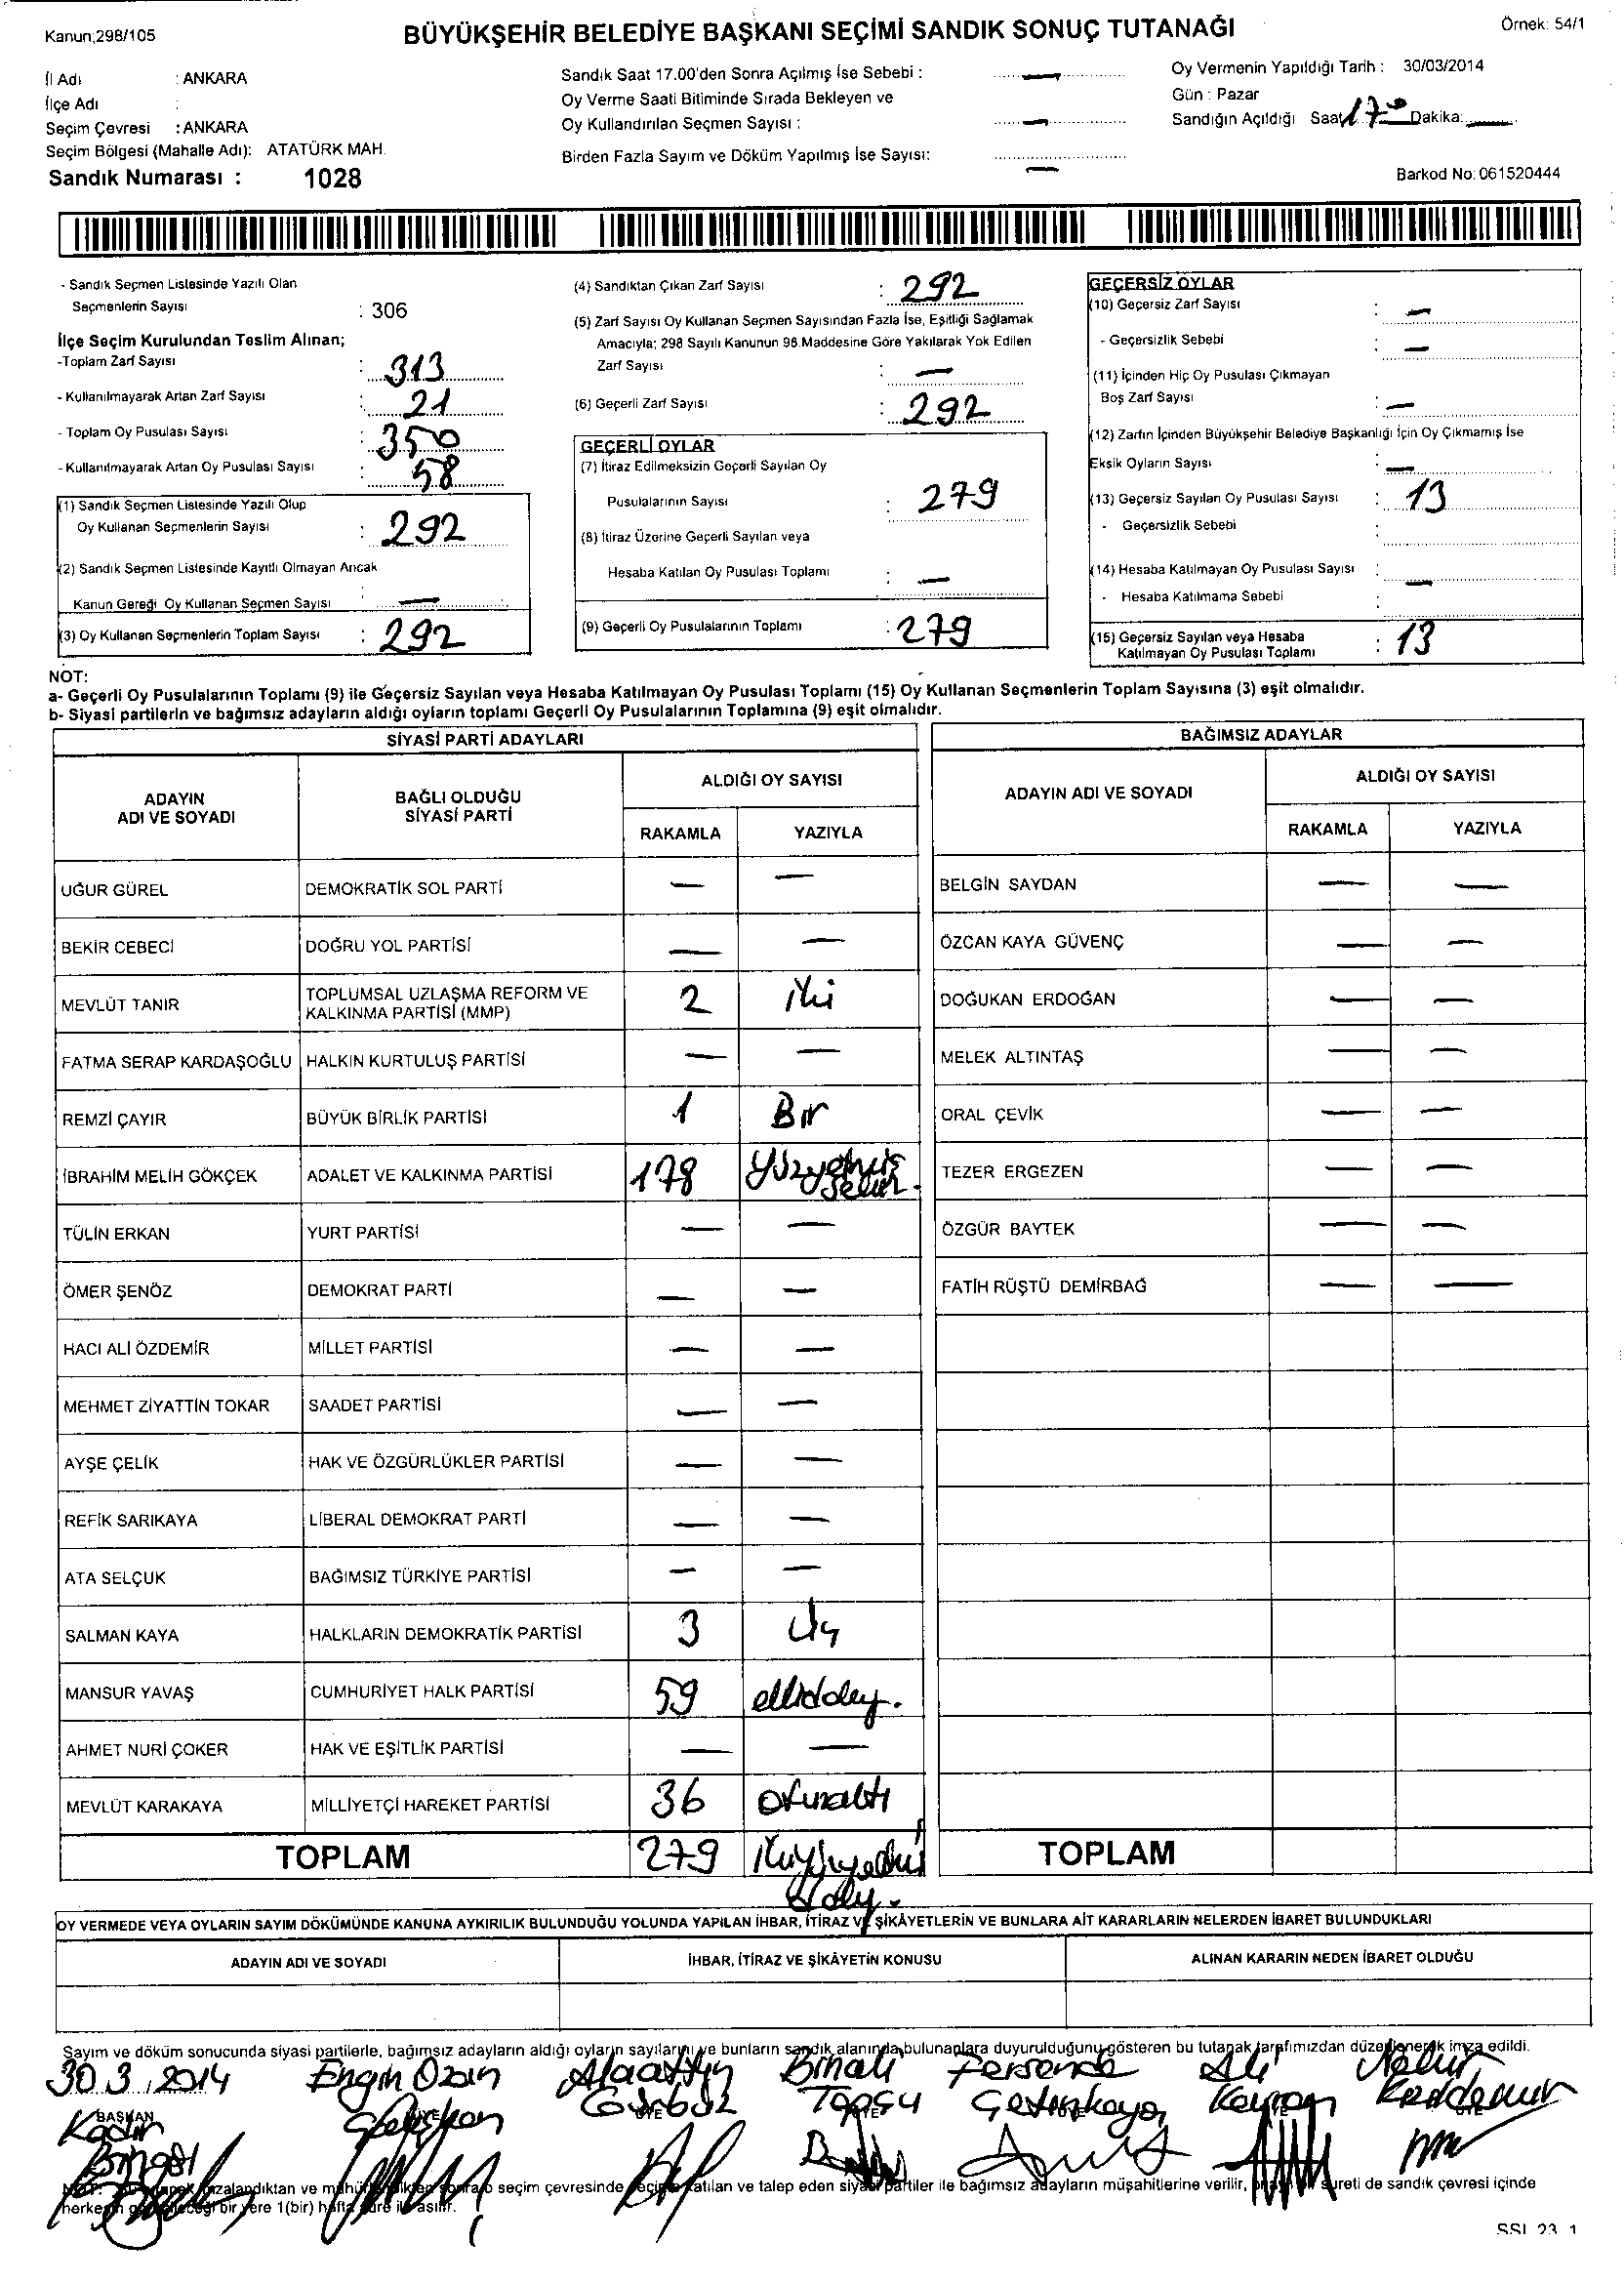 Kanun;298/105
BÜYÜKŞEHİR BELEDİYE BAŞKANI SEÇİMİ SANDIK SONUÇ TUTANAĞI
Örnek: 54/1
İl Adı : ANKARA
İlçe Adı :
Seçim Çevresi : ANKARA
Seçim Bölgesi (Mahalle Adı): ATATÜRK MAH.
Sandık Numarası : 1028
Sandık Saat 17.00'den Sonra Açılmış İse Sebebi : —
Oy Verme Saati Bitiminde Sırada Bekleyen ve
Oy Kullandırılan Seçmen Sayısı : —
Birden Fazla Sayım ve Döküm Yapılmış İse Sayısı: —
Oy Vermenin Yapıldığı Tarih : 30/03/2014
Gün : Pazar
Sandığın Açıldığı Saat 17 00 Dakika: —
Barkod No: 061520444
- Sandık Seçmen Listesinde Yazılı Olan
Seçmenlerin Sayısı : 306
İlçe Seçim Kurulundan Teslim Alınan;
-Toplam Zarf Sayısı : 313
- Kullanılmayarak Artan Zarf Sayısı : 21
- Toplam Oy Pusulası Sayısı : 350
- Kullanılmayarak Artan Oy Pusulası Sayısı : 58
(1) Sandık Seçmen Listesinde Yazılı Olup
Oy Kullanan Seçmenlerin Sayısı : 292
(2) Sandık Seçmen Listesinde Kayıtlı Olmayan Ancak
Kanun Gereği Oy Kullanan Seçmen Sayısı : —
(3) Oy Kullanan Seçmenlerin Toplam Sayısı : 292
(4) Sandıktan Çıkan Zarf Sayısı : 292
(5) Zarf Sayısı Oy Kullanan Seçmen Sayısından Fazla İse, Eşitliği Sağlamak
Amacıyla; 298 Sayılı Kanunun 98.Maddesine Göre Yakılarak Yok Edilen
Zarf Sayısı : —
(6) Geçerli Zarf Sayısı : 292
GEÇERLİ OYLAR
(7) İtiraz Edilmeksizin Geçerli Sayılan Oy
Pusulalarının Sayısı : 279
(8) İtiraz Üzerine Geçerli Sayılan veya
Hesaba Katılan Oy Pusulası Toplamı : —
(9) Geçerli Oy Pusulalarının Toplamı : 279
GEÇERSİZ OYLAR
(10) Geçersiz Zarf Sayısı : —
- Geçersizlik Sebebi : —
(11) İçinden Hiç Oy Pusulası Çıkmayan
Boş Zarf Sayısı : —
(12) Zarfın İçinden Büyükşehir Belediye Başkanlığı İçin Oy Çıkmamış İse
Eksik Oyların Sayısı : —
(13) Geçersiz Sayılan Oy Pusulası Sayısı : 13
- Geçersizlik Sebebi :
(14) Hesaba Katılmayan Oy Pusulası Sayısı : —
- Hesaba Katılmama Sebebi :
(15) Geçersiz Sayılan veya Hesaba
Katılmayan Oy Pusulası Toplamı : 13
NOT:
a- Geçerli Oy Pusulalarının Toplamı (9) ile Geçersiz Sayılan veya Hesaba Katılmayan Oy Pusulası Toplamı (15) Oy Kullanan Seçmenlerin Toplam Sayısına (3) eşit olmalıdır.
b- Siyasi partilerin ve bağımsız adayların aldığı oyların toplamı Geçerli Oy Pusulalarının Toplamına (9) eşit olmalıdır.
SİYASİ PARTİ ADAYLARI
ADAYIN ADI VE SOYADI
BAĞLI OLDUĞU SİYASİ PARTİ
ALDIĞI OY SAYISI
RAKAMLA YAZIYLA
UĞUR GÜREL DEMOKRATİK SOL PARTİ — —
BEKİR CEBECİ DOĞRU YOL PARTİSİ — —
MEVLÜT TANIR TOPLUMSAL UZLAŞMA REFORM VE KALKINMA PARTİSİ (MMP) 2 iki
FATMA SERAP KARDAŞOĞLU HALKIN KURTULUŞ PARTİSİ — —
REMZİ ÇAYIR BÜYÜK BİRLİK PARTİSİ 1 Bir
İBRAHİM MELİH GÖKÇEK ADALET VE KALKINMA PARTİSİ 178 yüzyetmiş sekiz.
TÜLİN ERKAN YURT PARTİSİ — —
ÖMER ŞENÖZ DEMOKRAT PARTİ — —
HACI ALİ ÖZDEMİR MİLLET PARTİSİ — —
MEHMET ZİYATTİN TOKAR SAADET PARTİSİ — —
AYŞE ÇELİK HAK VE ÖZGÜRLÜKLER PARTİSİ — —
REFİK SARIKAYA LİBERAL DEMOKRAT PARTİ — —
ATA SELÇUK BAĞIMSIZ TÜRKİYE PARTİSİ — —
SALMAN KAYA HALKLARIN DEMOKRATİK PARTİSİ 3 Üç
MANSUR YAVAŞ CUMHURİYET HALK PARTİSİ 59
AHMET NURİ ÇOKER HAK VE EŞİTLİK PARTİSİ — —
MEVLÜT KARAKAYA MİLLİYETÇİ HAREKET PARTİSİ 36 otuzaltı
TOPLAM 279
BAĞIMSIZ ADAYLAR
ADAYIN ADI VE SOYADI
ALDIĞI OY SAYISI
RAKAMLA YAZIYLA
BELGİN SAYDAN — —
ÖZCAN KAYA GÜVENÇ — —
DOĞUKAN ERDOĞAN — —
MELEK ALTINTAŞ — —
ORAL ÇEVİK — —
TEZER ERGEZEN — —
ÖZGÜR BAYTEK — —
FATİH RÜŞTÜ DEMİRBAĞ — —
TOPLAM
OY VERMEDE VEYA OYLARIN SAYIM DÖKÜMÜNDE KANUNA AYKIRILIK BULUNDUĞU YOLUNDA YAPILAN İHBAR, İTİRAZ VE ŞİKÂYETLERİN VE BUNLARA AİT KARARLARIN NELERDEN İBARET BULUNDUKLARI
ADAYIN ADI VE SOYADI
İHBAR, İTİRAZ VE ŞİKÂYETİN KONUSU
ALINAN KARARIN NEDEN İBARET OLDUĞU
Sayım ve döküm sonucunda siyasi partilerle, bağımsız adayların aldığı oyların sayılarını ve bunların sandık alanında bulunanlara duyurulduğunu gösteren bu tutanak tarafımızdan düzenlenerek imza edildi.
30.3.2014 Engin Ozan Alaattin Binali Fersende Ali
BAŞKAN Gürbüz Topçu Çetinkaya
Kadir
Bingöl
seçim çevresinde seçime katılan ve talep eden siyasi partiler ile bağımsız adayların müşahitlerine verilir, sureti de sandık çevresi içinde
herkesin bir yere 1(bir) hafta süre ile asılır.